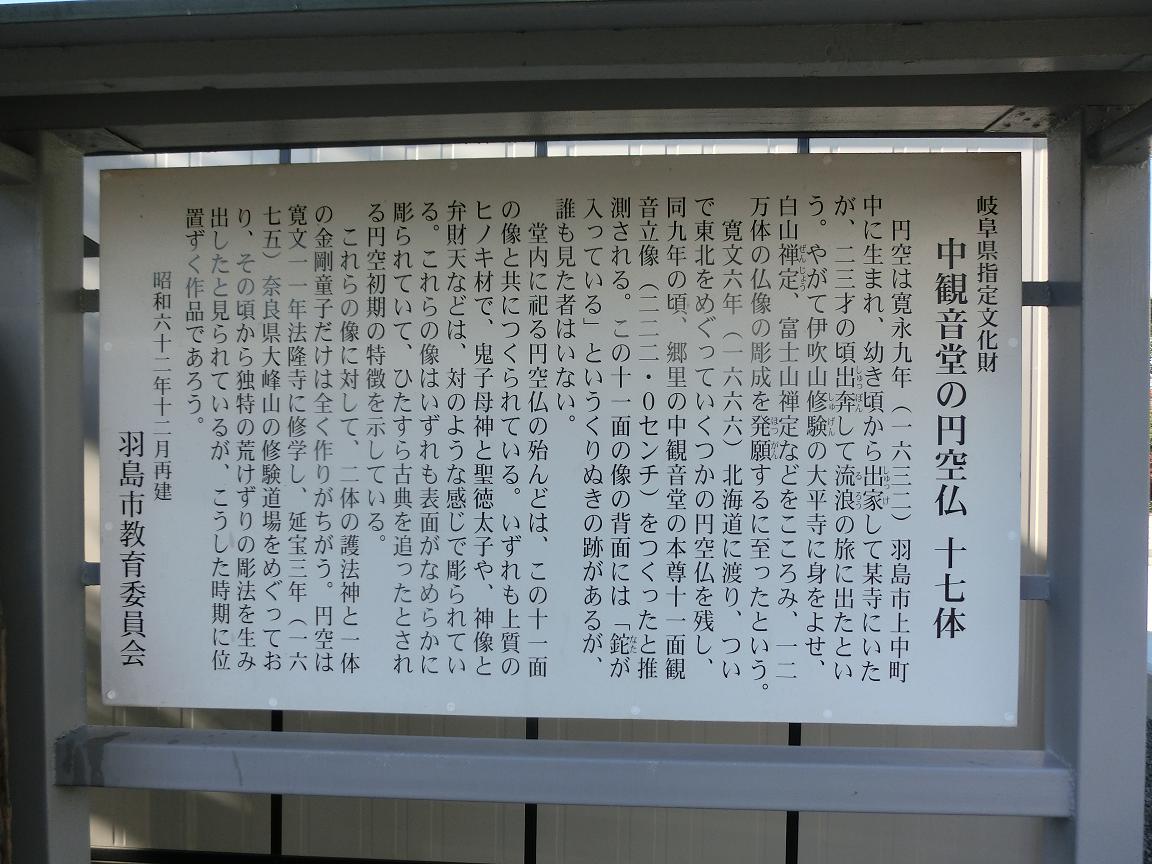 岐阜県指定文化財
中観音堂の円空仏 十七体
円空は寛永九年(一六三二)羽島市上中町
中に生まれ、幼き頃から出家して某寺にいた
が、二三才の頃出奔して流浪の旅に出たとい
う。やがて伊吹山修験の大平寺に身をよせ、
白山禅定、富士山禅定などをこころみ、一二
万体の仏像の彫成を発願するに至ったという。
寛文六年(一六六六)北海道に渡り、つい
で東北をめぐっていくつかの円空仏を残し、
同九年の頃、郷里の中観音堂の本尊十一面観
音立像(二二二・0センチ)をつくったと推
測される。この十一面の像の背面には「鉈が
入っている」というくりぬきの跡があるが、
誰も見た者はいない。
堂内に祀る円空仏の殆んどは、この十一面
の像と共につくられている。いずれも上質の
ヒノキ材で、鬼子母神と聖徳太子や、神像と
弁財天などは、対のような感じで彫られてい
る。これらの像はいずれも表面がなめらかに
彫られていて、ひたすら古典を追ったとされ
る円空初期の特徴を示している。
これらの像に対して、二体の護法神と一体
の金剛童子だけは全く作りがちがう。円空は
寛文一一年法隆寺に修学し、延宝三年(一六
七五)奈良県大峰山の修験道場をめぐってお
り、その頃から独特の荒けずりの彫法を生み
出したと見られているが、こうした時期に位
置ずく作品であろう。
昭和六十二年十二月再建
羽島市教育委員会